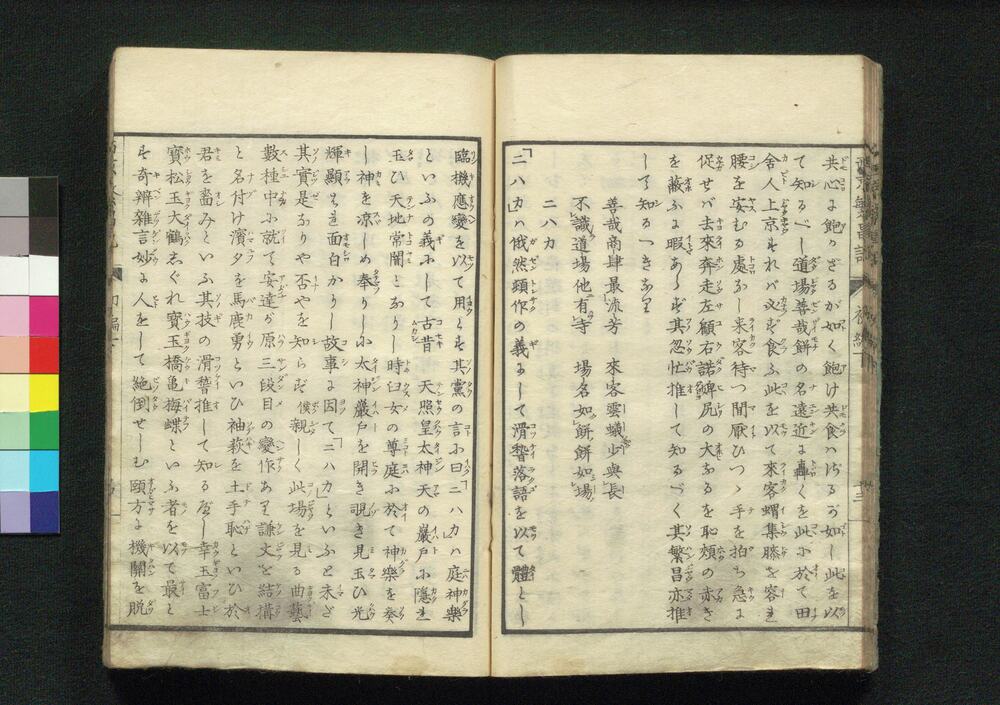 共心は飽かざるが如く飽け共食ハざるが如し此を以
て知るべし道場善哉餅の名遠近に轟くを此に於て田
舎人上京すれバ必ず食ふ此を以て來客蝟集膝を容れ
腰を安むる處なし来客待つ間厭ひつゝ手を拍ち急に
促せバ去來奔走左顧右諾婢尻の大なるを恥頬の赤き
を蔽ふに暇あらず其忽忙推して知るべく其繁昌亦推
して知るべきなり
善哉商肆最流芳 來客雲蟻少與長
不識道場他有寺 場名如餅餅如場
二ハカ
「二ハカ」ハ俄然頭作の義にして滑稽落語を以て體とし
臨機應變を以て用とす其黨の言に曰「二ハカ」ハ庭神樂
といふの義にして古昔 天照皇太神天の巖戸に隱れ
玉ひ天地常闇となりし時臼女の尊庭に於て神樂を奏
し神を凉しめ奉りしに太神巖戸を開き覗き見玉ひ光
輝顯はれ面白かりし故事に因て「二ハカ」といふと未ざ
其實是なりや否やを知らず僕親しく此場を見る曲藝
數種中に就て安達が原三段目の變作あり謙文を結構
と名付け濱夕を馬鹿勇といひ袖萩を土手恥といひ於
君を畜みといふ其技の滑稽推して知る可し幸玉富士
寳松玉大鶴志ぐれ寳玉橋亀梅蝶といふ者を以て最と
す奇辨雜言妙に人をして絶倒せしむ頤方に機關を脱